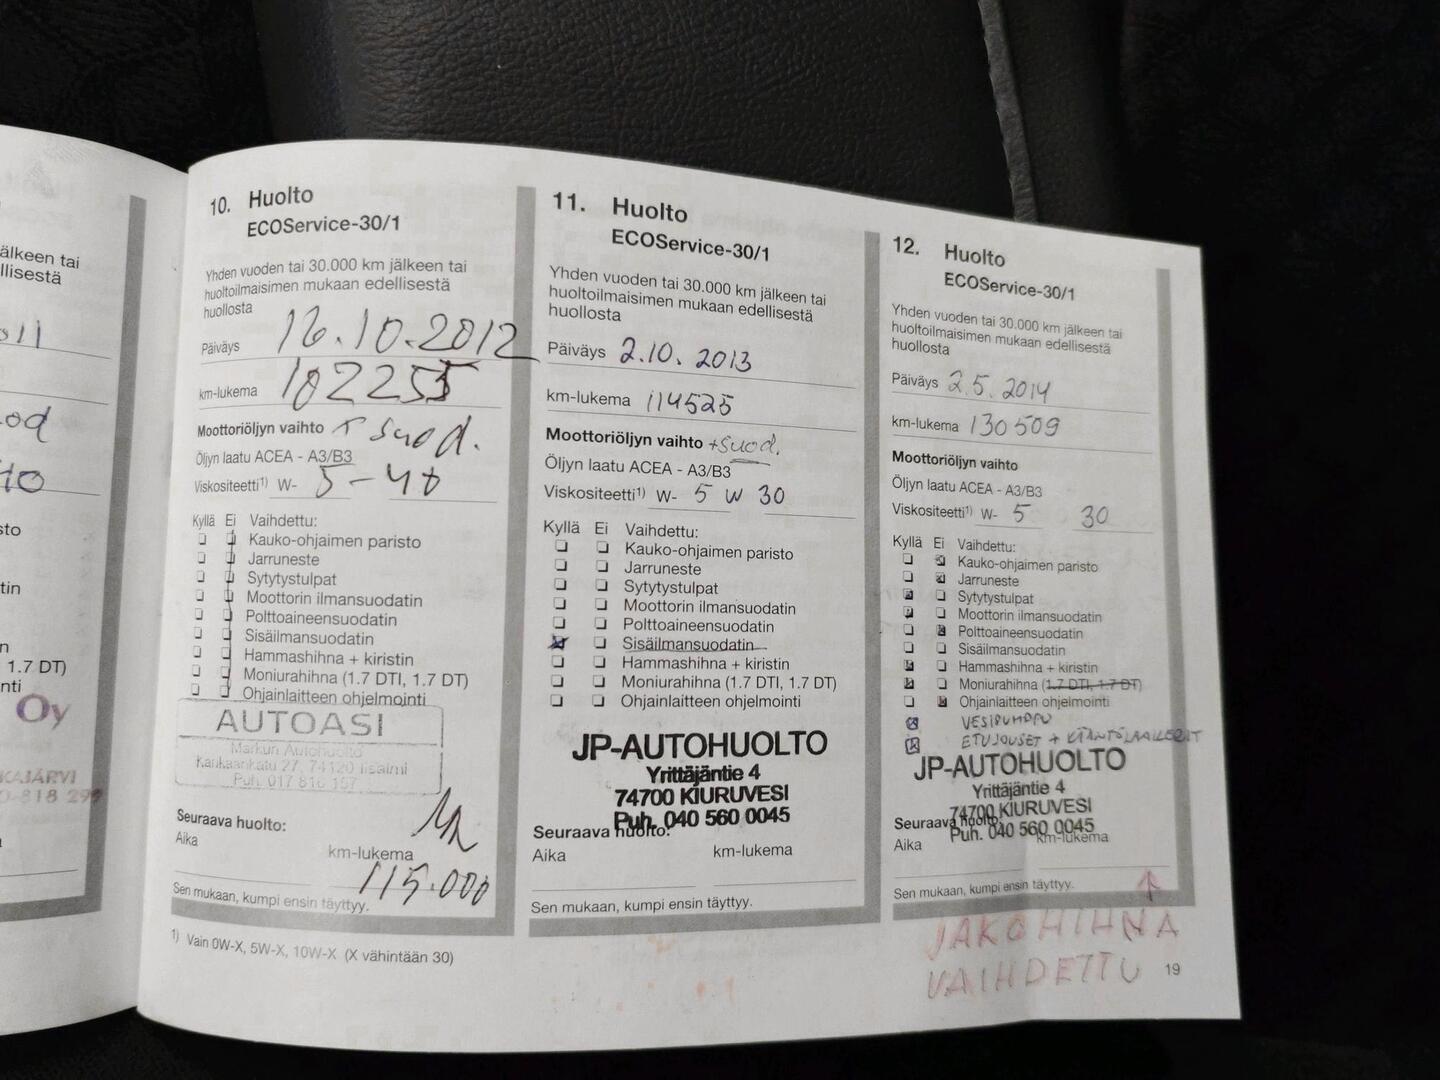 älkeen tai
llisestä
011
od
40
sto
tin
n
1.7 DT)
nti
Oy
KAJÄRVI
0-818 299
10. Huolto
ECOService-30/1
Yhden vuoden tai 30.000 km jälkeen tai
huoltoilmaisimen mukaan edellisestä
huollosta
Päiväys 16.10.2012
km-lukema 102255
Moottoriöljyn vaihto + suod.
Öljyn laatu ACEA - A3/B3
Viskositeetti1) W- 5-40
Kyllä Ei Vaihdettu:
Kauko-ohjaimen paristo
Jarruneste
Sytytystulpat
Moottorin ilmansuodatin
Polttoaineensuodatin
Sisäilmansuodatin
Hammashihna + kiristin
Moniurahihna (1.7 DTI, 1.7 DT)
Ohjainlaitteen ohjelmointi
AUTOASI
Markun Autohuolto
Kankaankatu 27, 74120 Iisalmi
Puh. 017 816 157
Seuraava huolto:
Aika
km-lukema
115.000
Sen mukaan, kumpi ensin täyttyy.
1) Vain 0W-X, 5W-X, 10W-X (X vähintään 30)
11. Huolto
ECOService-30/1
Yhden vuoden tai 30.000 km jälkeen tai
huoltoilmaisimen mukaan edellisestä
huollosta
Päiväys 2.10. 2013
km-lukema 114525
Moottoriöljyn vaihto +suod.
Öljyn laatu ACEA - A3/B3
Viskositeetti1) W- 5 W 30
Kyllä Ei Vaihdettu:
Kauko-ohjaimen paristo
Jarruneste
Sytytystulpat
Moottorin ilmansuodatin
Polttoaineensuodatin
Sisäilmansuodatin
Hammashihna + kiristin
Moniurahihna (1.7 DTI, 1.7 DT)
Ohjainlaitteen ohjelmointi
JP-AUTOHUOLTO
Yrittäjäntie 4
74700 KIURUVESI
Puh. 040 560 0045
Seuraava huolto:
Aika km-lukema
Sen mukaan, kumpi ensin täyttyy.
12. Huolto
ECOService-30/1
Yhden vuoden tai 30.000 km jälkeen tai
huoltoilmaisimen mukaan edellisestä
huollosta
Päiväys 2.5.2014
km-lukema 130509
Moottoriöljyn vaihto
Öljyn laatu ACEA - A3/B3
Viskositeetti1) W- 5 30
Kyllä Ei Vaihdettu:
Kauko-ohjaimen paristo
Jarruneste
Sytytystulpat
Moottorin ilmansuodatin
Polttoaineensuodatin
Sisäilmansuodatin
Hammashihna + kiristin
Moniurahihna (1.7 DTI, 1.7 DT)
Ohjainlaitteen ohjelmointi
VESIPUMPPU
ETUJOUSET + KÄÄNTÖLAAKERIT
JP-AUTOHUOLTO
Yrittäjäntie 4
74700 KIURUVESI
Puh. 040 560 0045
Seuraava huolto:
Aika km-lukema
Sen mukaan, kumpi ensin täyttyy.
JAKOHIHNA
VAIHDETTU
19